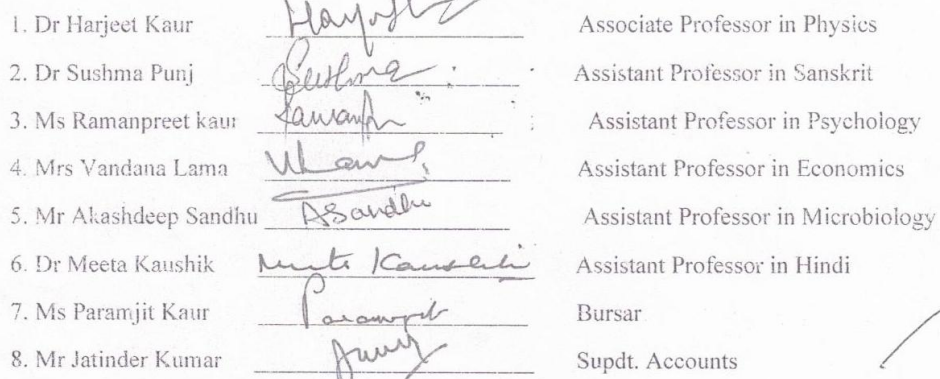 1. Dr Harjeet Kaur Associate Professor in Physics
2. Dr Sushma Punj Sushma Assistant Professor in Sanskrit
3. Ms Ramanpreet kaur Assistant Professor in Psychology
4. Mrs Vandana Lama Assistant Professor in Economics
5. Mr Akashdeep Sandhu ASandhu Assistant Professor in Microbiology
6. Dr Meeta Kaushik Assistant Professor in Hindi
7. Ms Paramjit Kaur Paramjit Bursar
8. Mr Jatinder Kumar Supdt. Accounts